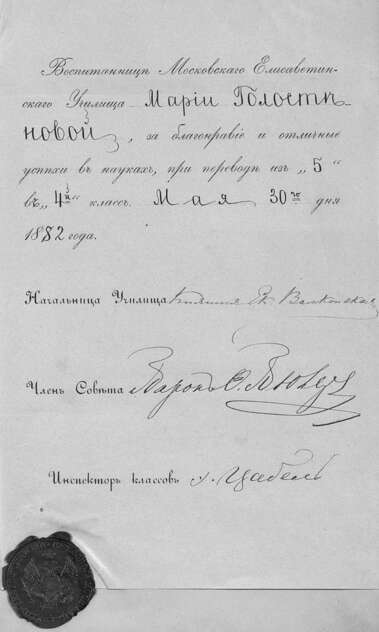 Воспитанницѣ Московскаго Елисаветин-
скаго Училища Маріи Голостѣ-
новой, за благонравіе и отличные
успѣхи въ наукахъ, при переводѣ изъ „5“
въ „4й“ классъ. Мая 30го дня
1882 года.
Начальница Училища
Членъ Совѣта Баронъ
Инспекторъ классовъ Цабель